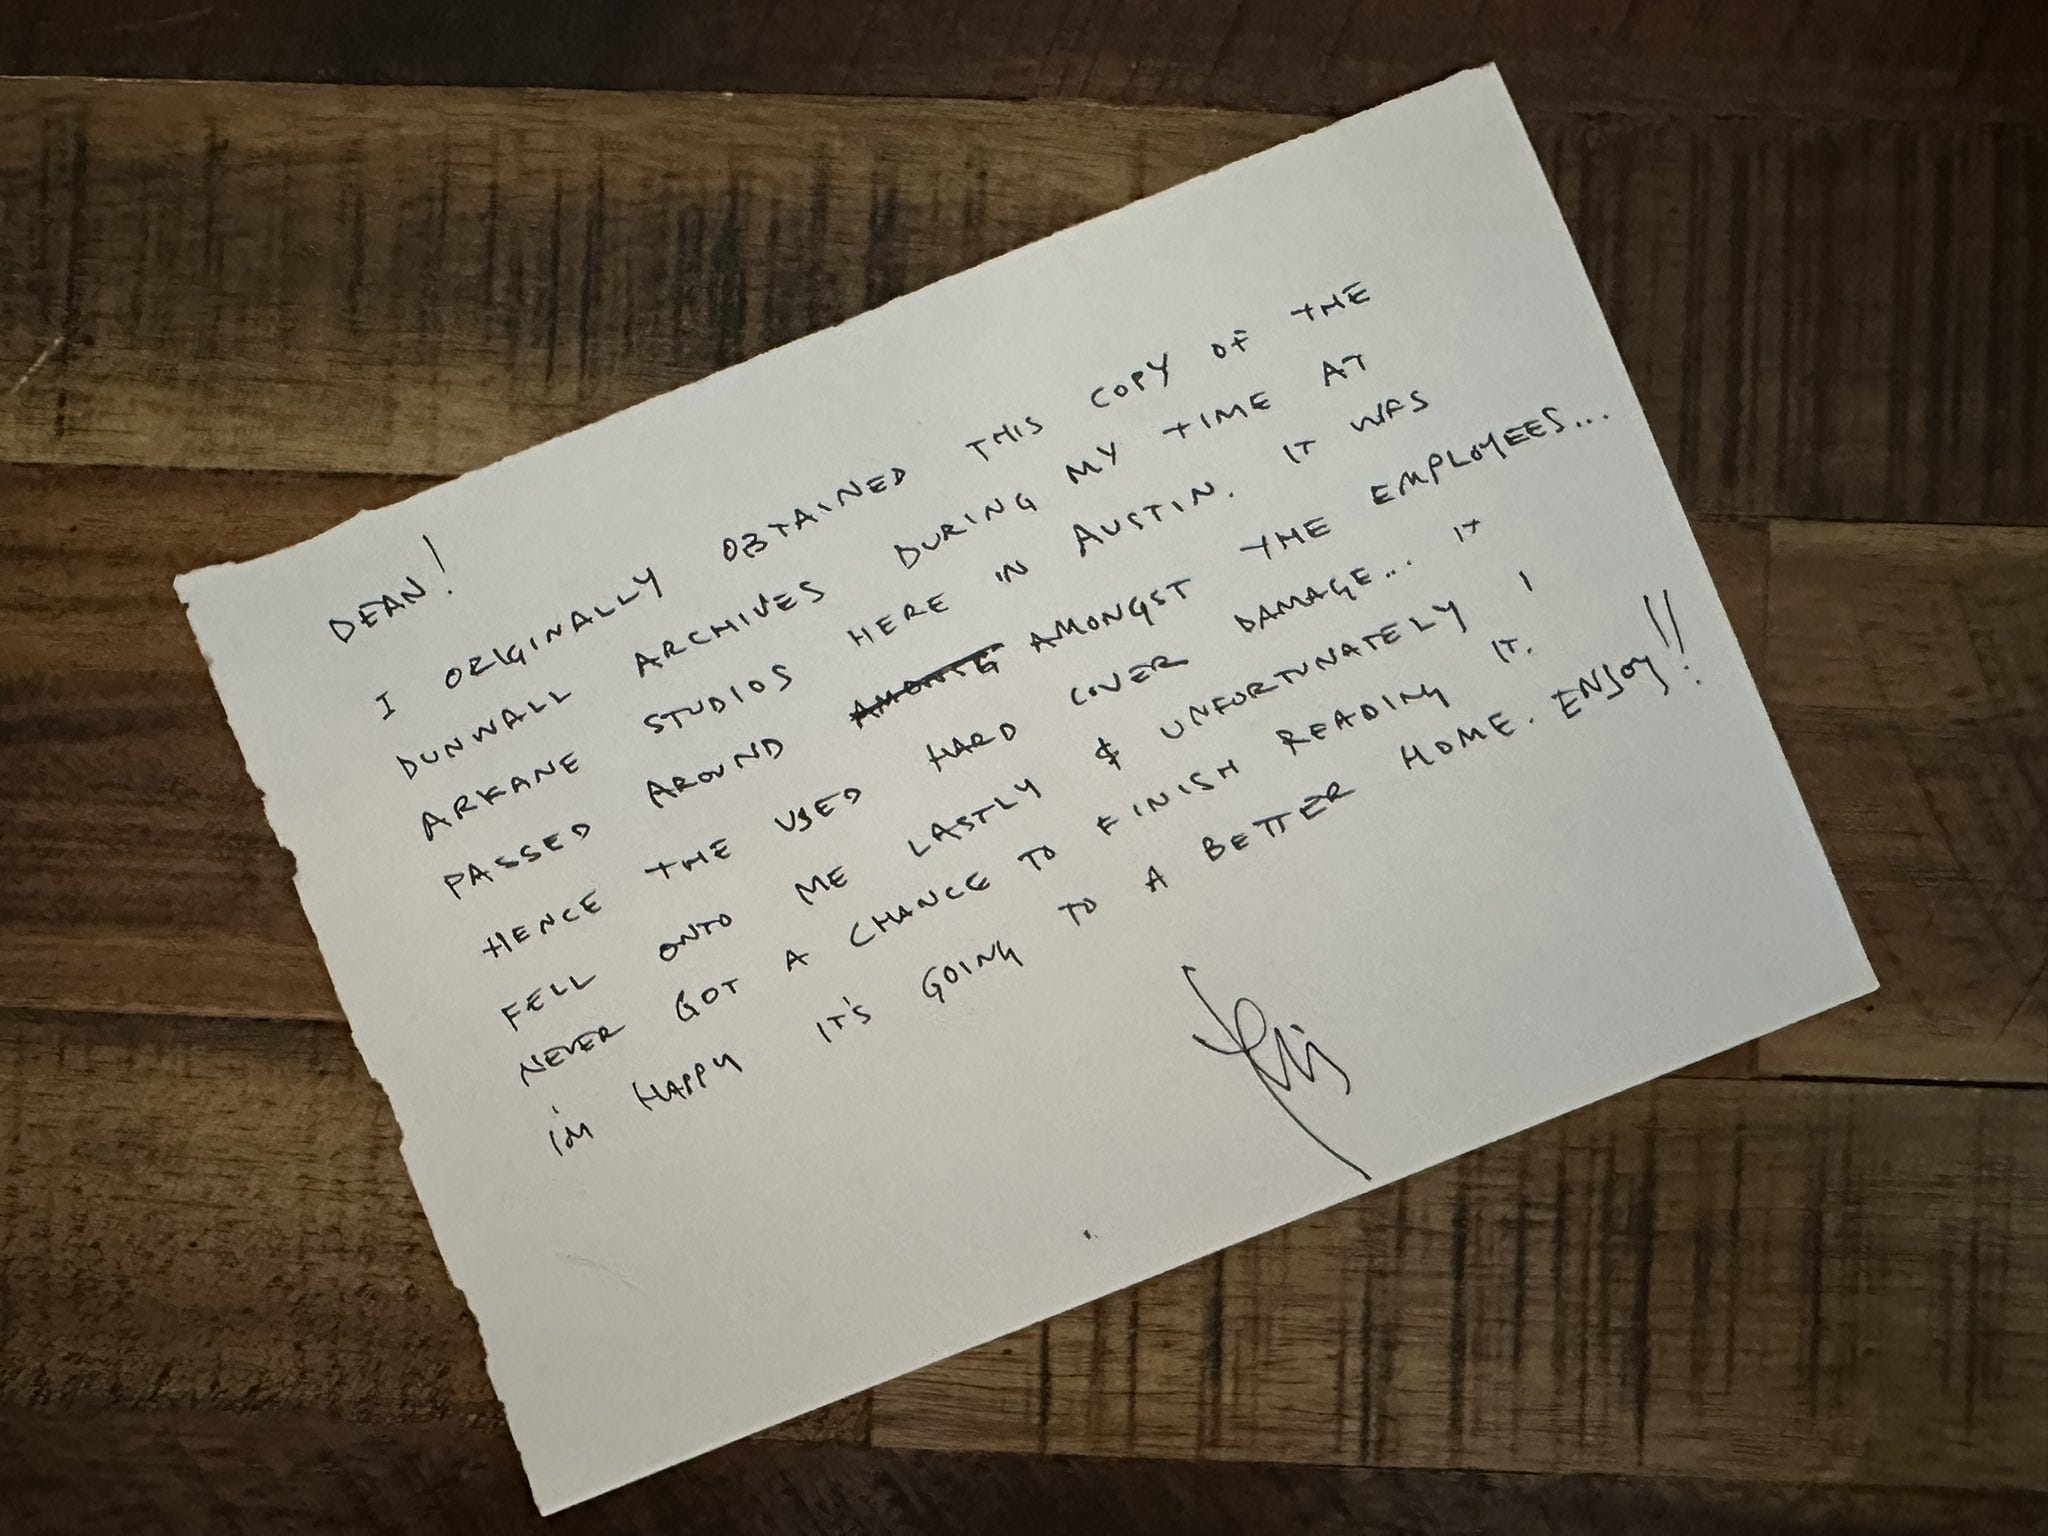 DEAN!
I ORIGINALLY OBTAINED THIS COPY OF THE
DUNWALL ARCHIVES DURING MY TIME AT
ARKANE STUDIOS HERE IN AUSTIN. IT WAS
PASSED AROUND AMONGST THE EMPLOYEES...
HENCE THE USED HARD COVER DAMAGE... IT
FELL ONTO ME LASTLY & UNFORTUNATELY I
NEVER GOT A CHANCE TO FINISH READING IT.
I'M HAPPY IT'S GOING TO A BETTER HOME. ENJOY!!